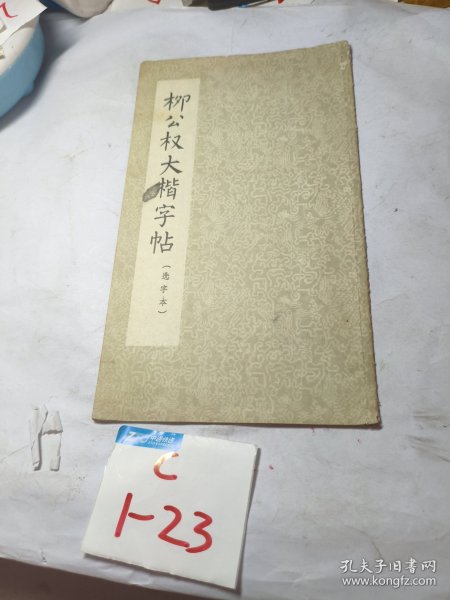 柳公权大楷字帖
（选字本）
C
1-23
孔夫子旧书网
www.kongfz.com